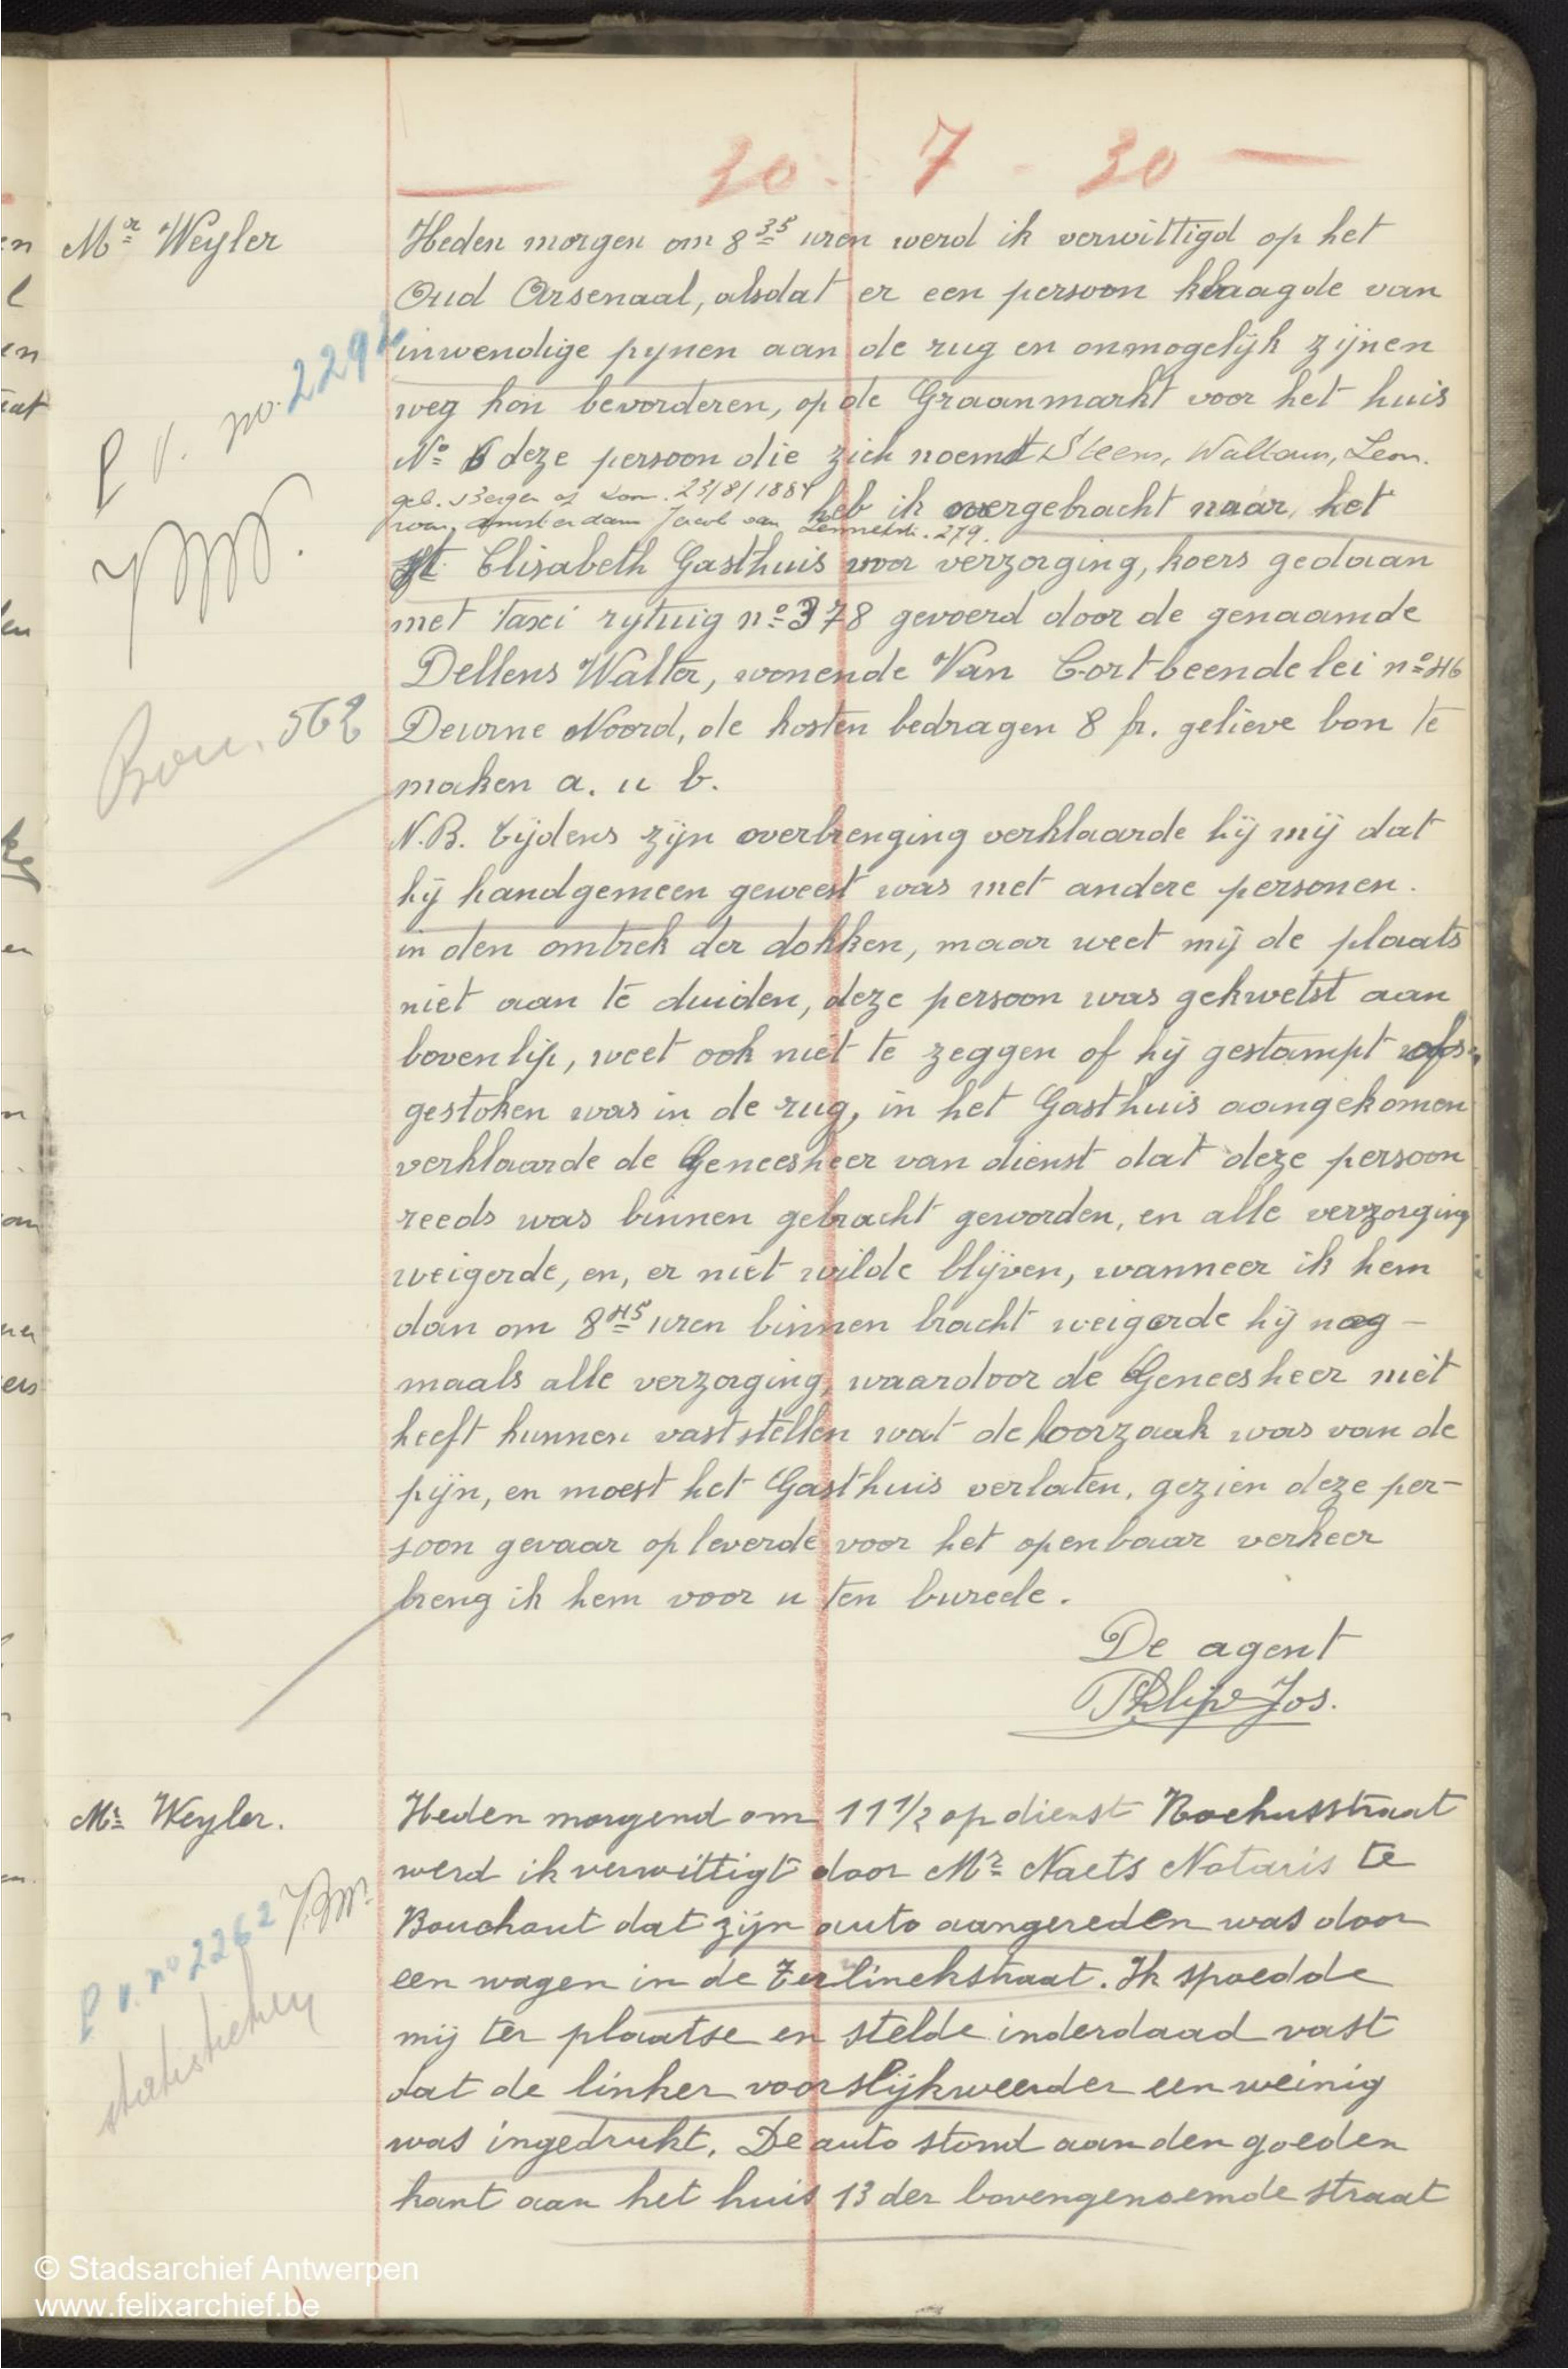 30 - 7 - 30
Mr Weyler
P V. no. 229
Bon. 562
Heden morgen om 8 35 uren werd ik verwittigd op het
Oud Arsenaal, alsdat er een persoon klaagde van
inwendige pynen aan de rug en onmogelijk zijnen
weg kon bevorderen, op de Graanmarkt voor het huis
No 6 deze persoon die zich noemt Steens, Leon.
geb. Bergen 23/8/1884
won. Amsterdam Jacob van Lennekstr. 279.
heb ik overgebracht naar het
St Elisabeth Gasthuis voor verzorging, koers gedaan
met taxi rytuig no 378 gevoerd door de genaamde
Dellens Walter, wonende Van Cortbeendelei no 46
Deurne Noord, de kosten bedragen 8 fr. gelieve bon te
maken a. u b.
N.B. tijdens zijn overbrenging verklaarde hij mij dat
hij handgemeen geweest was met andere personen.
in den omtrek der dokken, maar weet mij de plaats
niet aan te duiden, deze persoon was gekwetst aan
bovenlip, weet ook niet te zeggen of hij gestampt of
gestoken was in de rug, in het Gasthuis aangekomen
verklaarde de Geneesheer van dienst dat deze persoon
reeds was binnen gebracht geworden, en alle verzorging
weigerde, en, er niet wilde blijven, wanneer ik hem
dan om 8 45 uren binnen bracht weigerde hij nog-
maals alle verzorging, waardoor de Geneesheer niet
heeft kunnen vaststellen wat de oorzaak was van de
pijn, en moest het Gasthuis verlaten, gezien deze per-
soon gevaar opleverde voor het openbaar verkeer
breng ik hem voor u ten bureele.
De agent
Philips Jos.
Mr Weyler.
P v. no 2262
statistieken
Heden morgend om 11 1/2 op dienst Rochusstraat
werd ik verwittigt door Mr Naets Notaris te
Bouchout dat zijn auto aangereden was door
een wagen in de Terlinckstraat. Ik spoedde
mij ter plaatse en stelde inderdaad vast
dat de linker voorslijkweerder een weinig
was ingedrukt. De auto stond aan den goeden
kant aan het huis 13 der bovengenoemde straat
© Stadsarchief Antwerpen
www.felixarchief.be